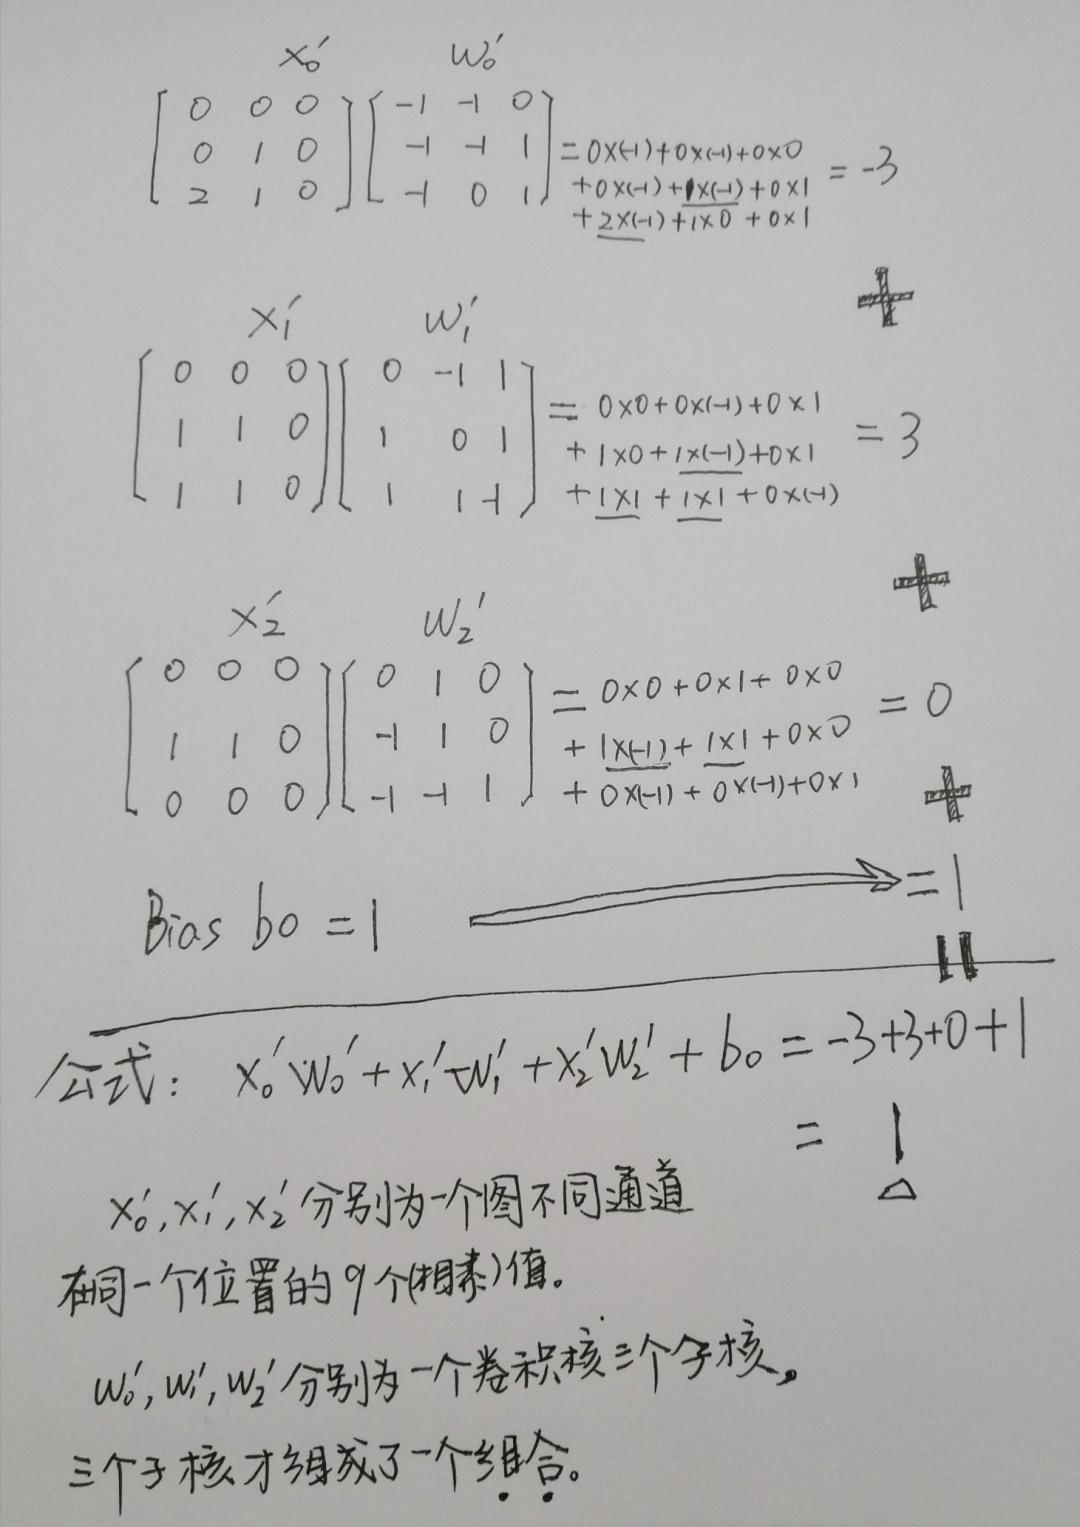 x₀′ w₀′
0 0 0 -1 -1 0
0 1 0 -1 -1 1 =0×(-1)+0×(-1)+0×0
2 1 0 -1 0 1 +0×(-1)+1×(-1)+0×1 = -3
+2×(-1)+1×0+0×1
+
x₁′ w₁′
0 0 0 0 -1 1 = 0×0+0×(-1)+0×1
1 1 0 1 0 1 +1×0+1×(-1)+0×1 = 3
1 1 0 1 1 -1 +1×1+1×1+0×(-1)
+
x₂′ w₂′
0 0 0 0 1 0 = 0×0+0×1+0×0
1 1 0 -1 1 0 +1×(-1)+1×1+0×0 = 0
0 0 0 -1 -1 1 +0×(-1)+0×(-1)+0×1
+
Bias b0 = 1 =1
=
公式: x₀′w₀′+x₁′w₁′+x₂′w₂′+b₀=-3+3+0+1
= 1
x₀′,x₁′,x₂′分别为一个图不同通道
在同一个位置的9个(相素)值。
w₀′,w₁′,w₂′分别为一个卷积核三个子核。
三个子核才组成了一个组合。